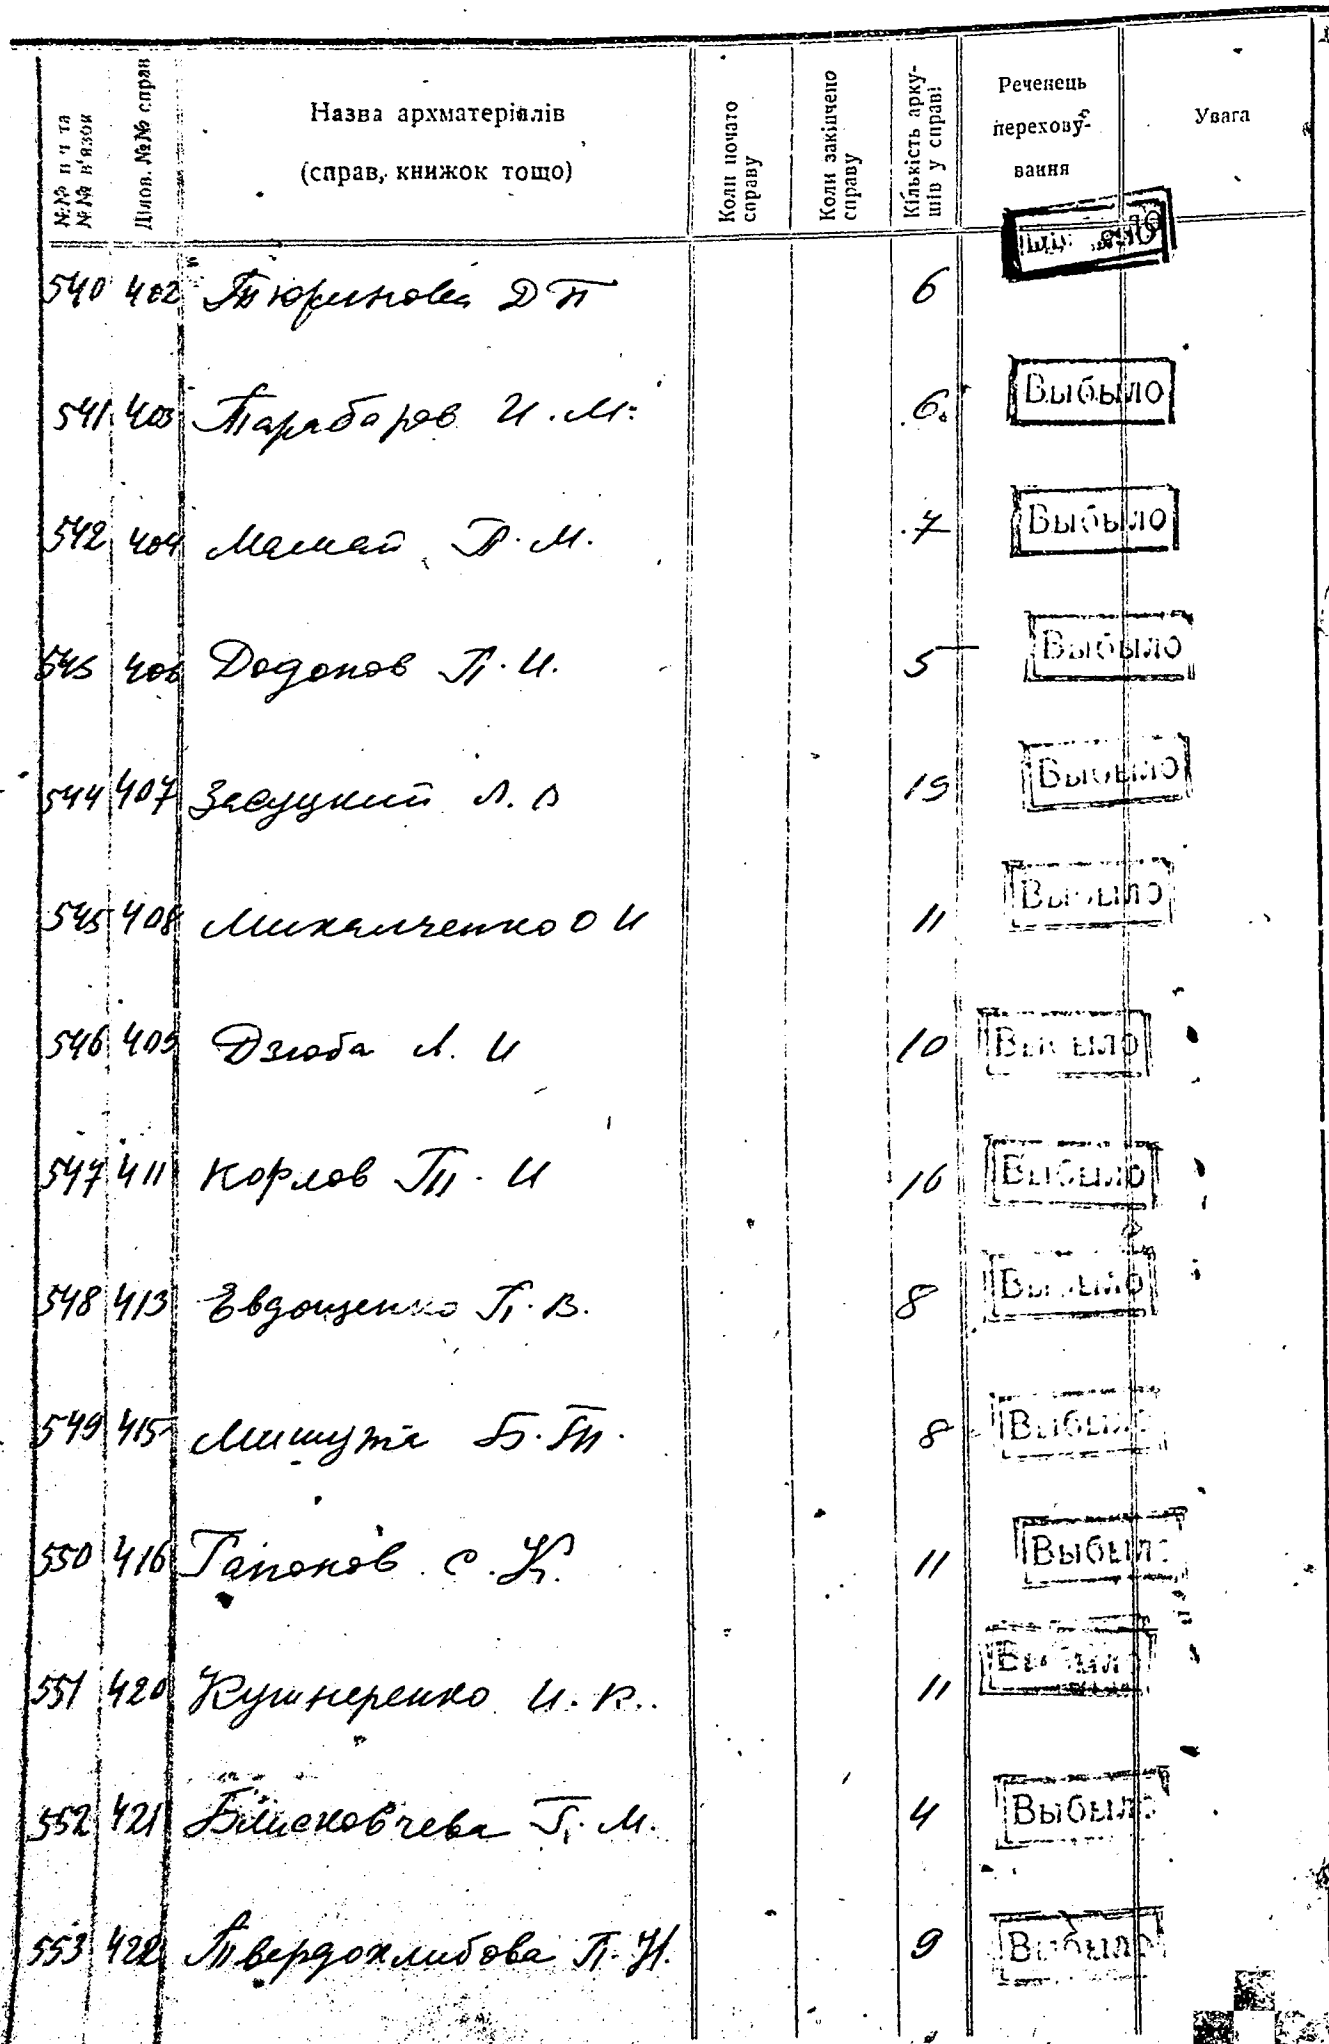 №№ п ч та №№ в'язок
Ділов. №№ справ
Назва архматеріялів
(справ, книжок тощо)
Коли почато справу
Коли закінчено справу
Кількість аркушів у справі
Реченець
переховування
Увага
540 402 Тюринова Д П 6
541 403 Тарабаров И. М. 6. Выбыло
542 404 Мамай П. М. 7 Выбыло
543 406 Додонов П. И. 5 Выбыло
544 407 Засуцкий Л. В 19 Выбыло
545 408 Михальченко О И 11 Выбыло
546 409 Дзюба Л. И 10 Выбыло
547 411 Корлов Т. И 16 Выбыло
548 413 Евдощенко П. В. 8 Выбыло
549 415 Мишута Б. Т. 8 Выбыло
550 416 Гапонов С. К. 11 Выбыло
551 420 Кушнеренко И. К. 11 Выбыло
552 421 Г. М. 4 Выбыло
553 422 Твердохлибова П. Н. 9 Выбыло